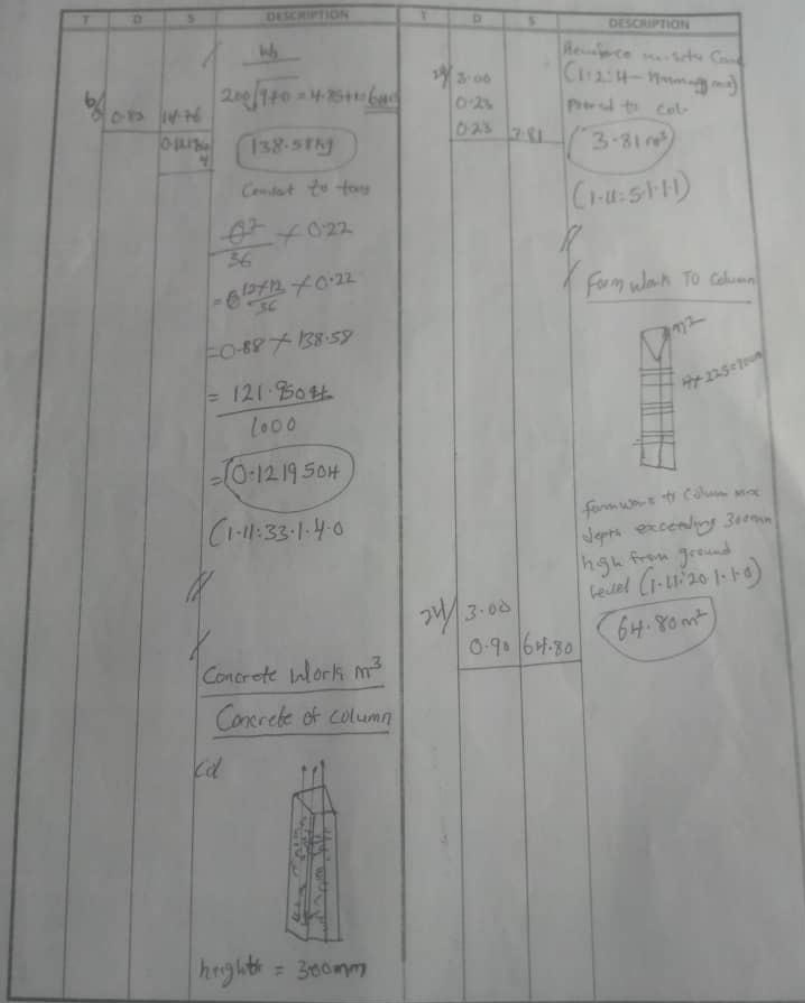 T D S DESCRIPTION
Ws
200√970 = 4.85+1=6no
6/ 0.82 14.76
138.58kg
Convert to tons
0²/36 × 0.22
= 6 12×12/36 × 0.22
= 0.88 × 138.58
= 121.9504
1000
= 0.1219504
(1.11:33.1.4.0
//
/
Concrete Work m³
Concrete of column
Col
height = 300mm
T D S DESCRIPTION
Reinforce in-situ Conc
24/ 3.00 (1:2:4-
0.23 to col
0.23 3.81 3.81m³
(1.11:5.1.1.1)
//
/ Form work TO Column
m²
4×225=900m
formwork to Column
depth exceeding 300mm
high from ground
level (1.11:20.1.1.0)
24/ 3.00
0.90 64.80 64.80m²